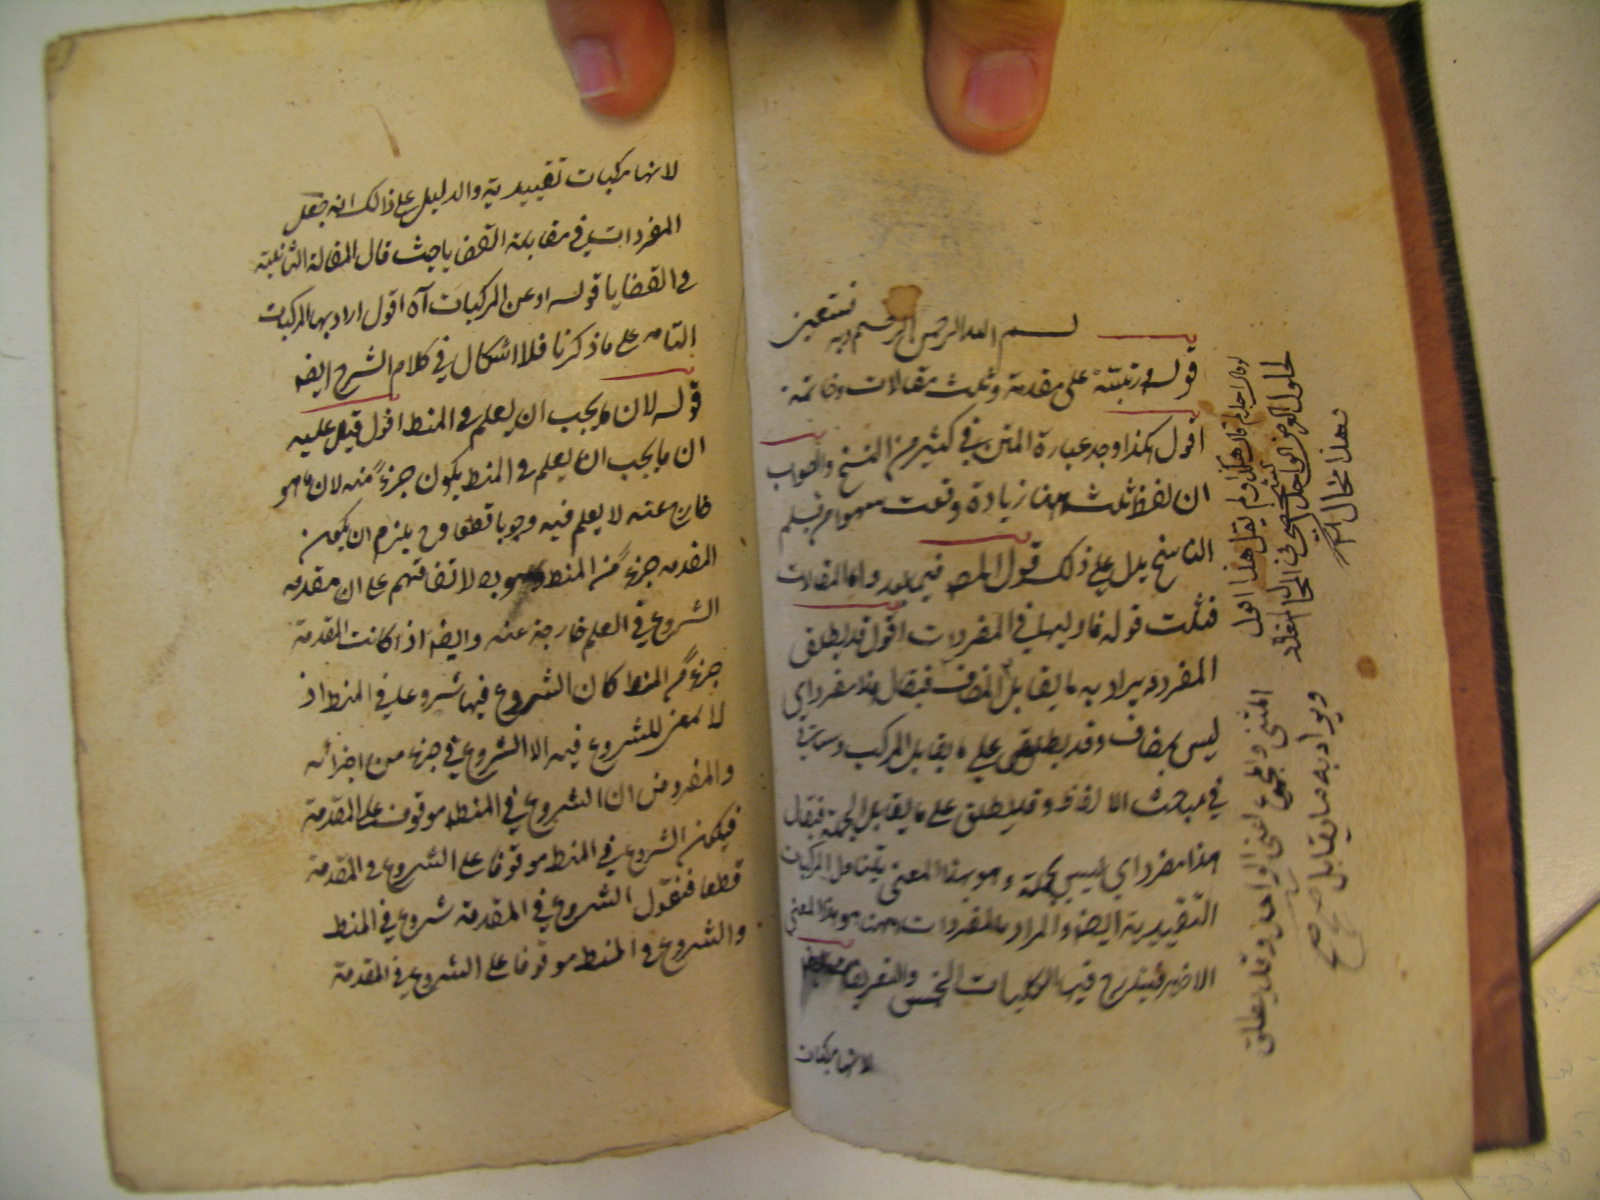 بسم الله الرحمن الرحيم وبه نستعين
قوله ورتبته على مقدمة وثلث مقالات وخاتمة
اقول هكذا وجد عبارة المتن في كثير من النسخ والصواب
ان لفظ ثلث ههنا زيادة وقعت سهوا من قلم
الناسخ يدل على ذلك قول المصـ فيما بعد واما المقالات
فثلث قوله فاوليها في المفردات اقول قد يطلق
المفرد ويراد به ما يقابل المضاف فيقال هذا مفرد اي
ليس بمضاف وقد يطلق على ما يقابل المركب وسيأتي
في مباحث الالفاظ وقد يطلق على ما يقابل الجملة فيقال
هذا مفرد اي ليس بجملة وهو بهذا المعنى يتناول المركبات
التقييدية ايضا والمراد بالمفردات ههنا هو بهذا المعنى
الاخير فيندرج فيها الكليات الخمس والتعريفات
لانها مركبات
المثنى والمجموع اعني الواحد وقد يطلق
ويراد به ما يقابل صح
لانها مركبات تقييدية والدليل على ذالك انه جعل
المفردات في مقابلة القضايا حيث قال المقالة الثانية
في القضايا قوله او عن المركبات آه اقول اراد بها المركبات
التامه على ما ذكرنا فلا اشكال في كلام الشرح ايضا
قوله لان ما يجب ان يعلم في المنط اقول قيل عليه
ان ما يجب ان يعلم في المنط يكون جزءً منه لان ما هو
خارج عنه لا يعلم فيه وجوبا قطعا وح يلزم ان يكون
المقدمه جزءً من المنط وهو بط لاتفاقهم على ان مقدمه
الشروع في العلم خارجة عنه وايضا اذا كانت المقدمة
جزءً من المنط كان الشروع فيها شروعا في المنط اذ
لا معنى للشروع فيه الا الشروع في جزء من اجزائه
والمفروض ان الشروع في المنط موقوف على المقدمة
فيكون الشروع في المنط موقوفا على الشروع في المقدمة
قطعا فنقول الشروع في المقدمة شروع في المنط
والشروع في المنط موقوفا على الشروع في المقدمة